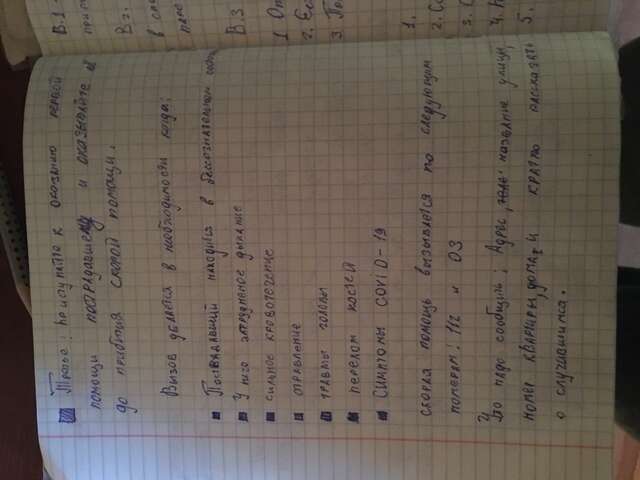 Третье: приступайте к оказанию первой
помощи пострадавшему и оказывайте её
до прибытия скорой помощи.
Вызов делается в необходимости когда:
Пострадавший находится в бессознательном
У него затрудненное дыхание
сильное кровотечение
отравление
травмы головы
перелом костей
Симптомы COVID-19
скорая помощь вызывается по следующим
номерам: 112 и 03
Что надо сообщить: Адрес, название улицы,
номер квартиры, дома, и кратко рассказать
о случившимся.
В.1
В 2.
В.3
1
2.
3.
1.
2.
3.
4.
5.